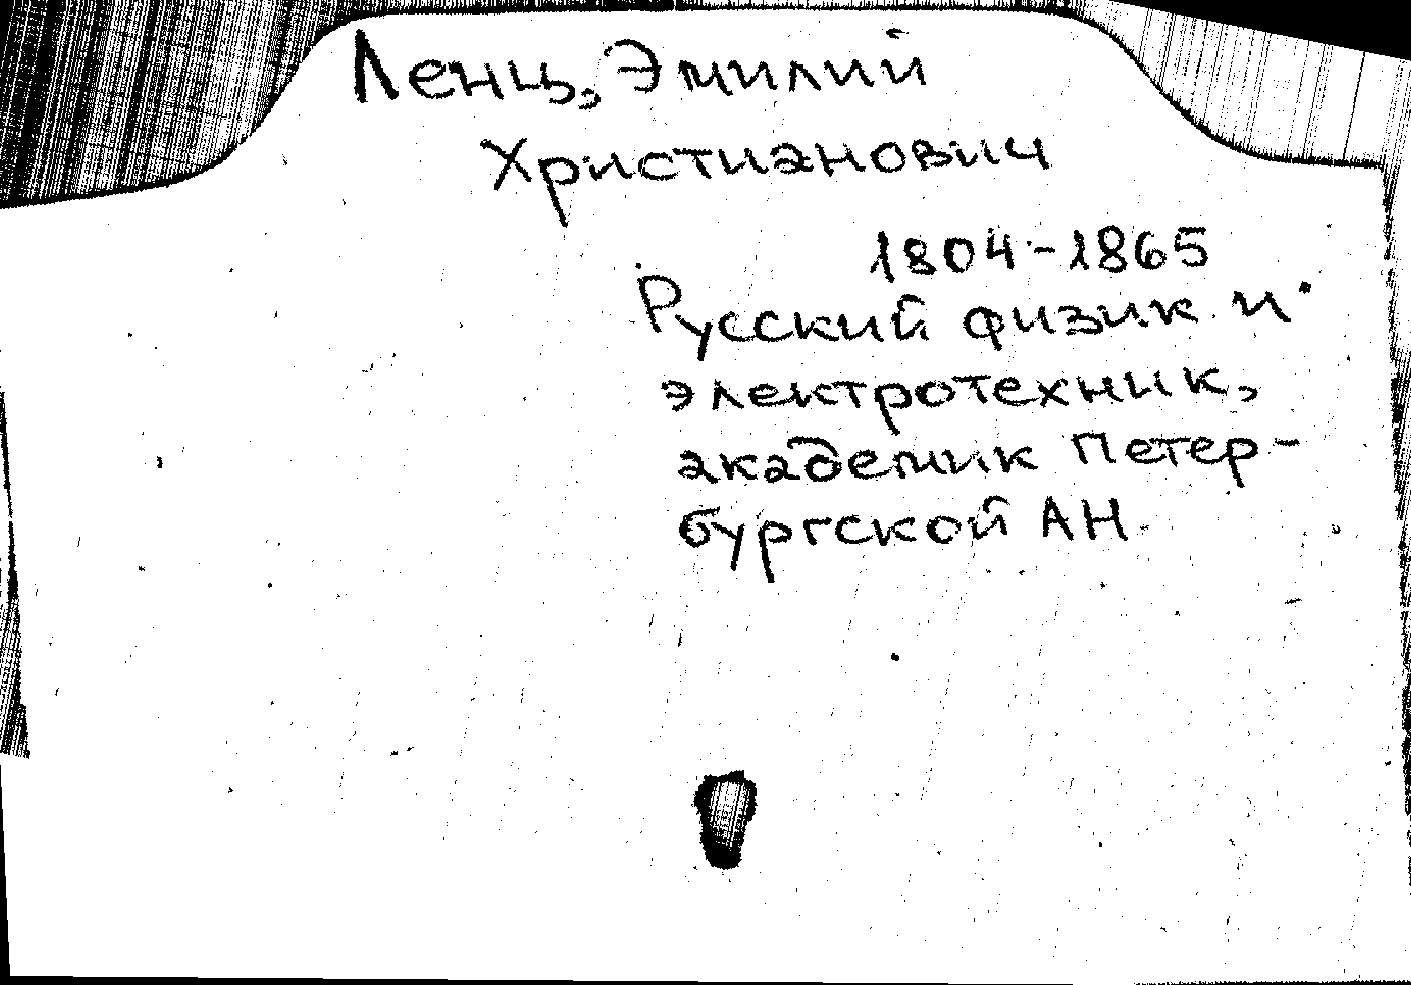 Ленц, Эмилий
Христианович
1804-1865
Русский физик и
электротехник,
академик Петер-
бургской АН.